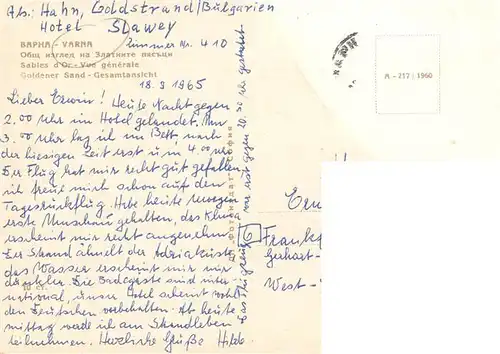 Abs.: Hahn, Goldstrand/Bulgarien
Hotel Slawey
Zimmer Nr. 410
ВАРНА - VARNA
Общ изглед на Златните пясъци
Sables d'Or - Vue générale
Goldener Sand - Gesamtansicht
18. 9. 1965
Lieber Erwin! Heute Nacht gegen
2.00 Uhr im Hotel gelandet. Um
3.00 Uhr lag ich im Bett, nach
der hiesigen Zeit erst um 4.00 Uhr
Der Flug hat mir recht gut gefallen
ich freue mich schon auf den
Tagesrückflug. Habe heute morgen
erste Umschau gehalten, das Klima
erscheint mir recht angenehm.
Der Strand ähnelt der Adriaküste,
das Wasser erscheint mir nur
dunkler. Die Badegäste sind inter-
national, unser Hotel scheint wohl
den Deutschen vorbehalten. Ab heute
mittag werde ich am Strandleben
teilnehmen. Herzliche Grüße Hilde.
10 ст.
Das Flugzeug
erst gegen 20.30 Uhr gestartet
А - 217 / 1960
6
Frankf
Gerhart-
West-